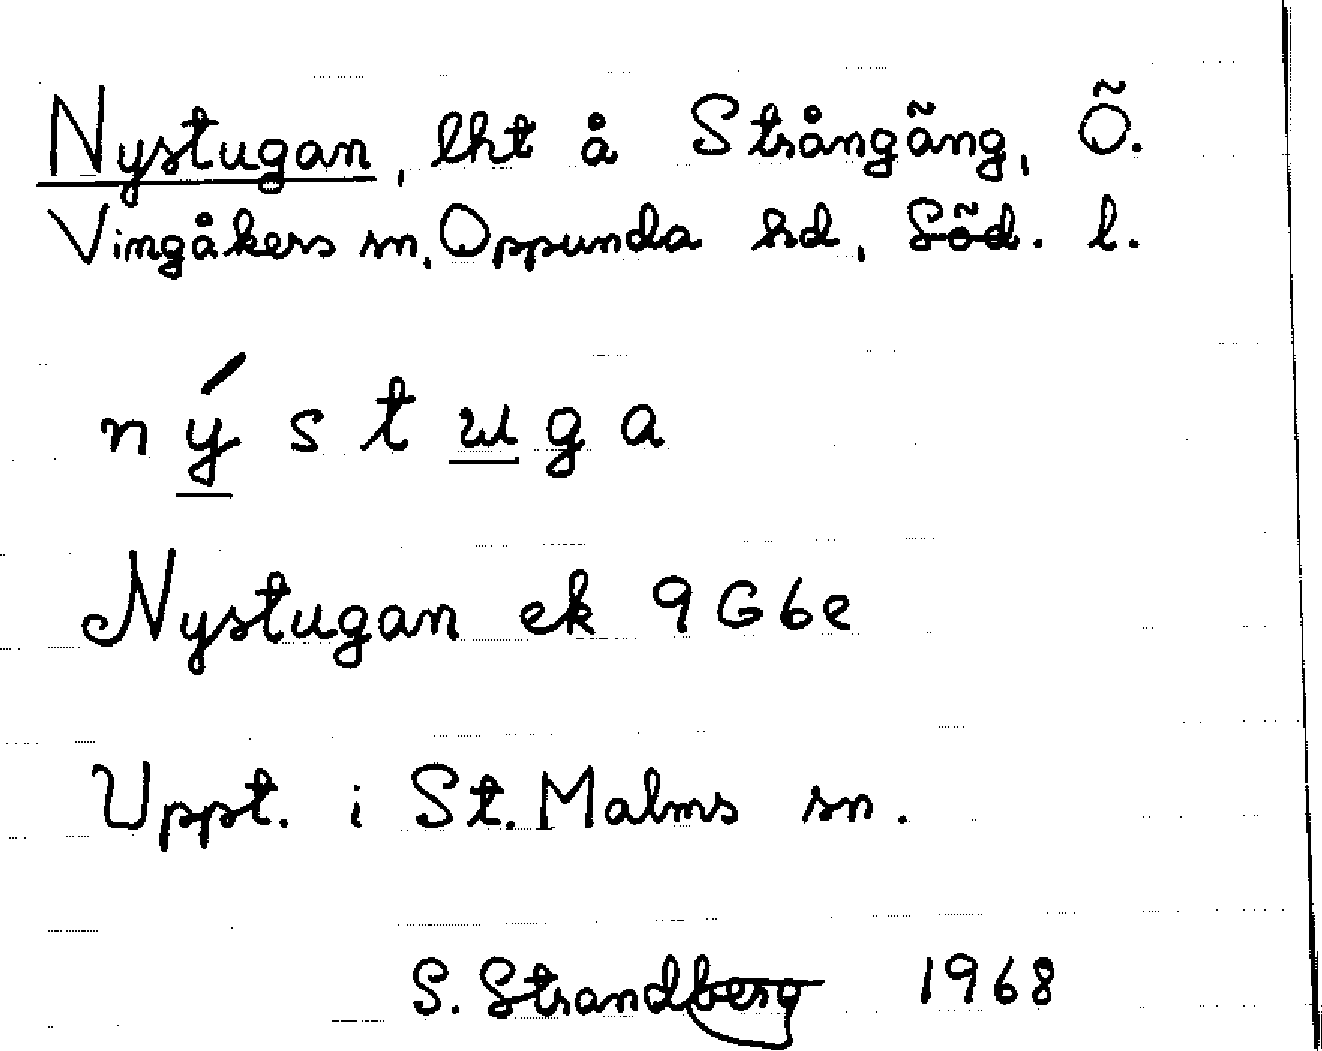 Nystugan, lht å Strångäng, Ö.
Vingåkers sn, Oppunda hd, Söd. l.
nýstuga
Nystugan ek 9G6e
Uppt. i St. Malms sn.
S. Strandberg 1968